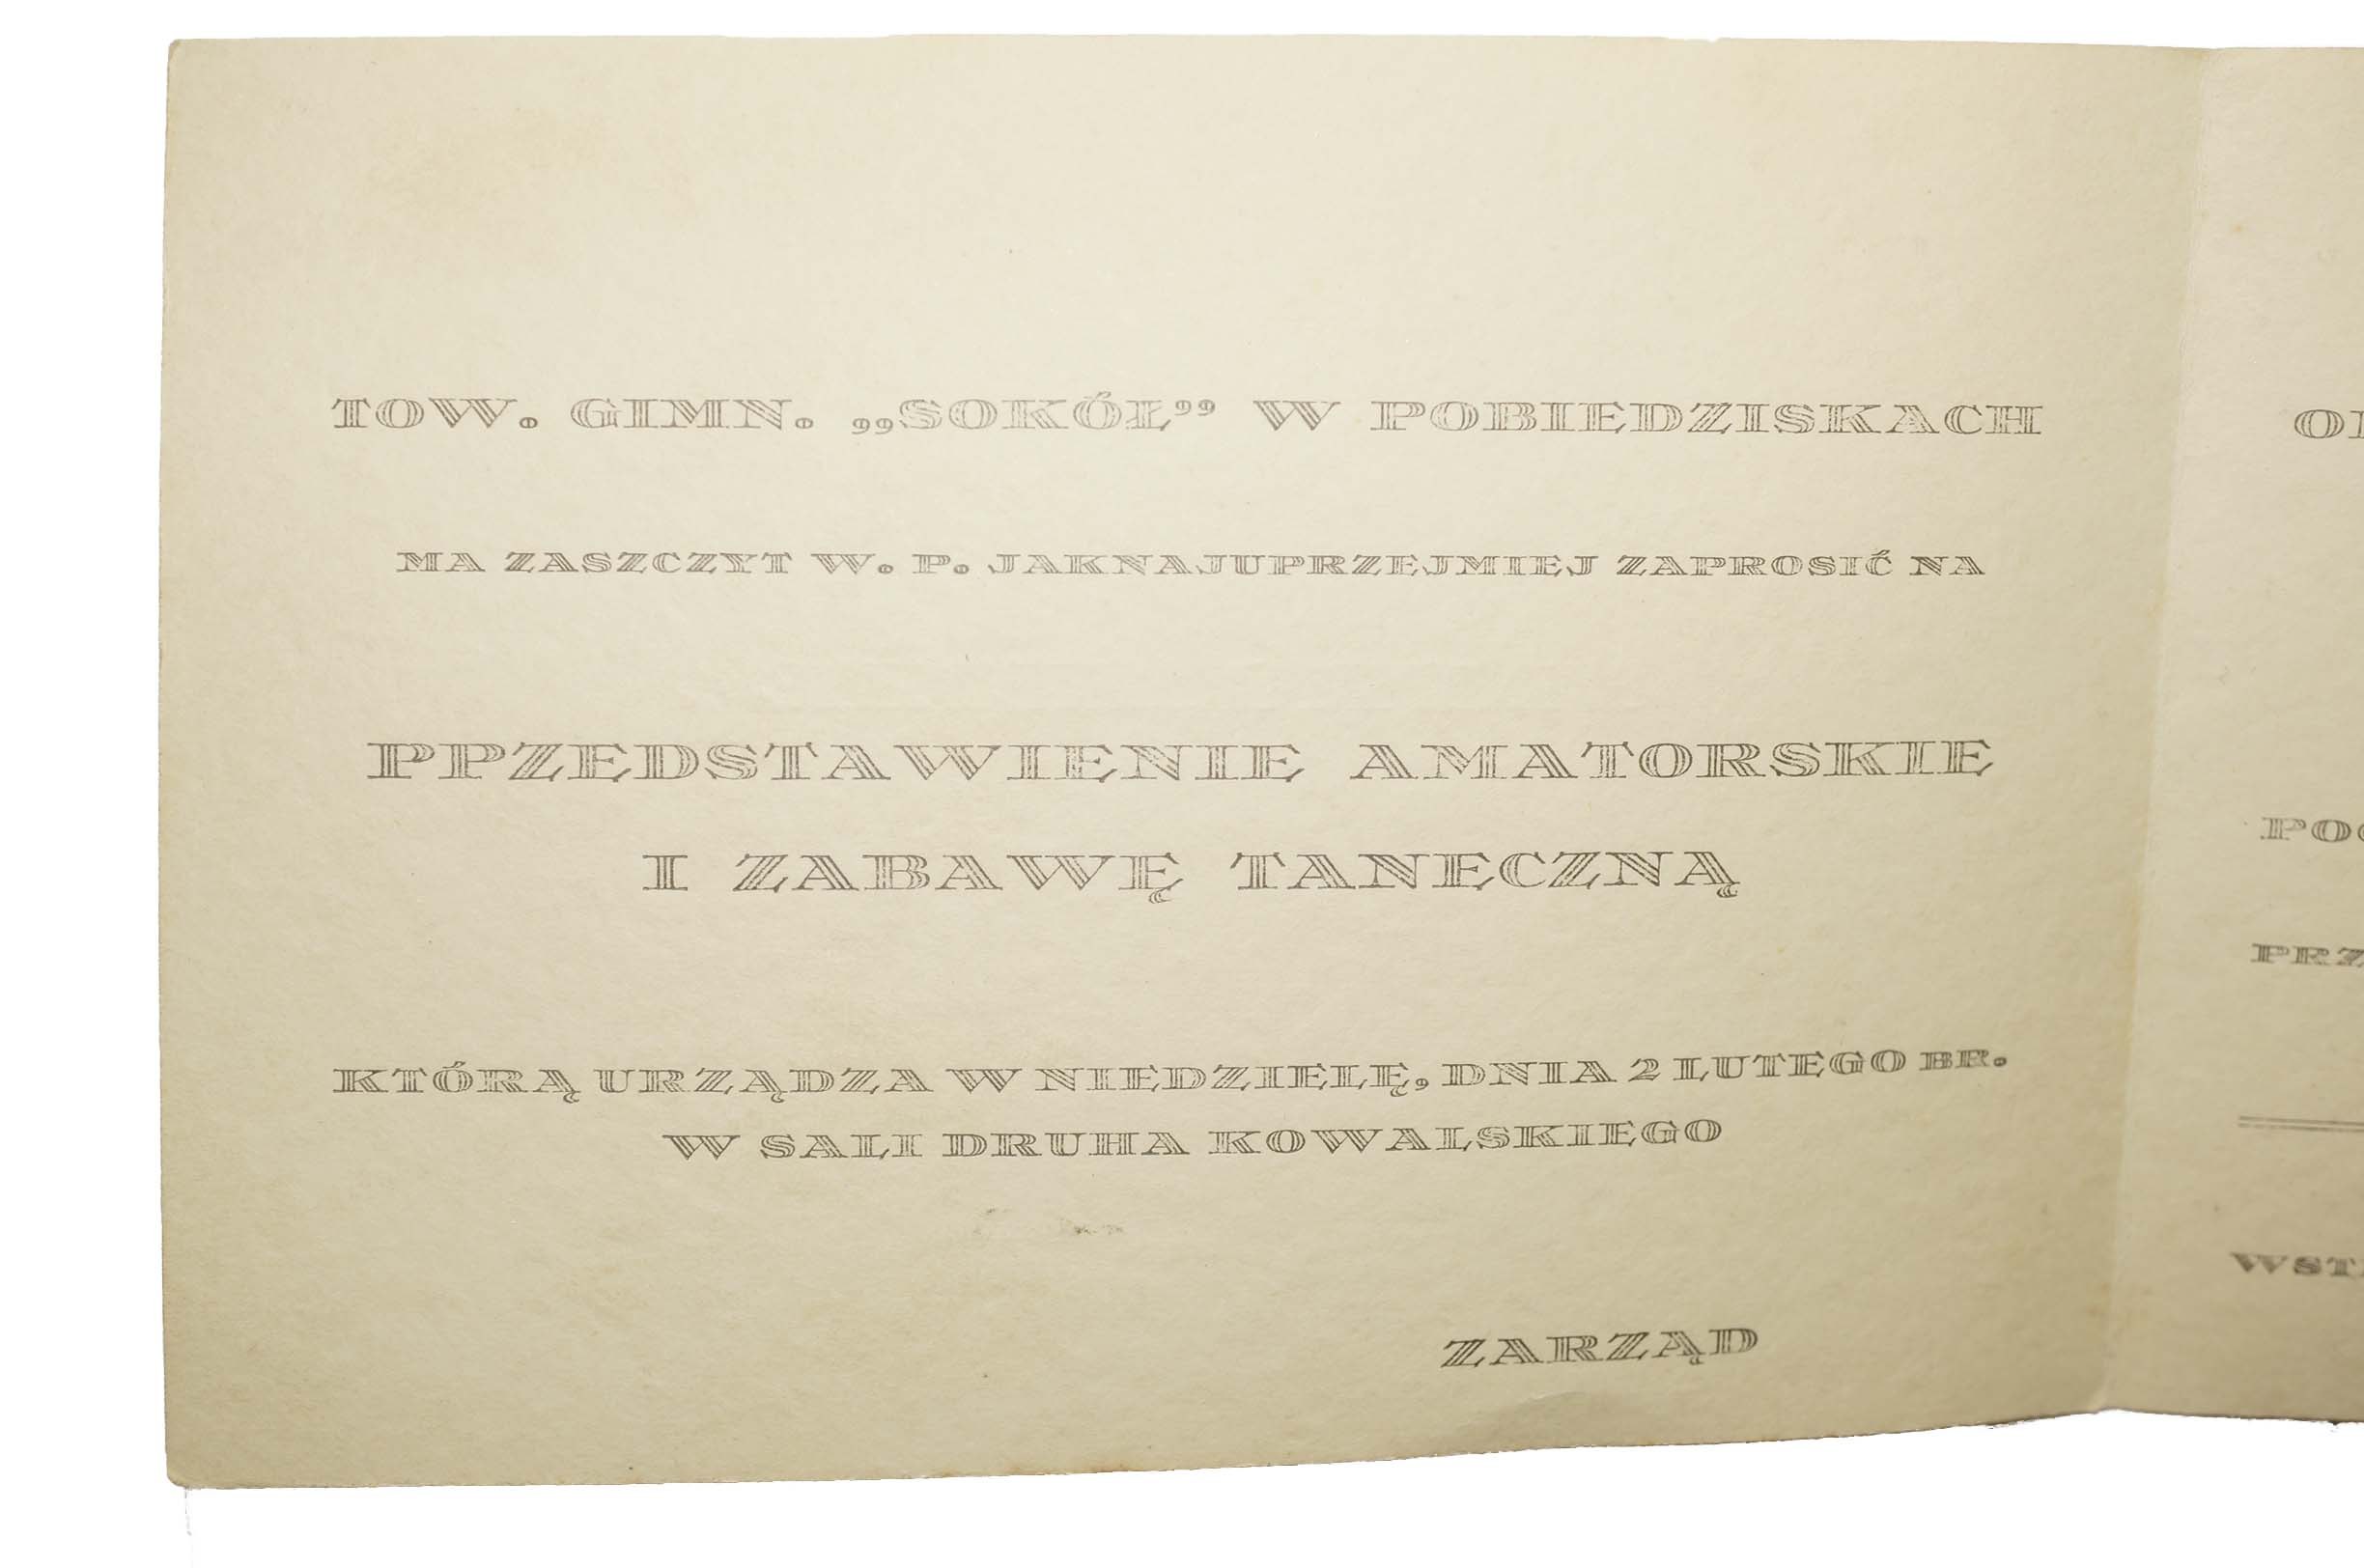 TOW. GIMN. „SOKÓŁ” W POBIEDZISKACH
MA ZASZCZYT W. P. JAKNAJUPRZEJMIEJ ZAPROSIĆ NA
PPZEDSTAWIENIE AMATORSKIE
I ZABAWĘ TANECZNĄ
KTÓRĄ URZĄDZA W NIEDZIELĘ, DNIA 2 LUTEGO BR.
W SALI DRUHA KOWALSKIEGO
ZARZĄD